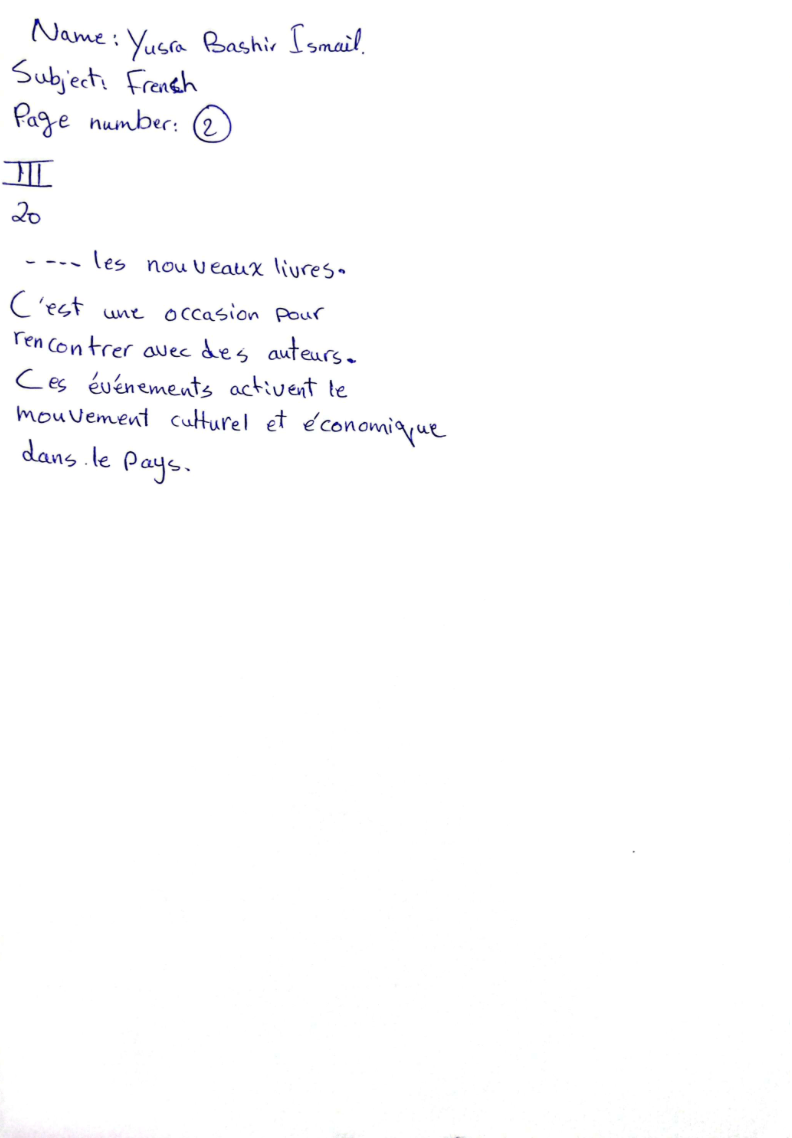 Name: Yusra Bashir Ismail.
Subject: French
Page number: 2
III
20
---- les nouveaux livres.
C'est une occasion pour
rencontrer avec des auteurs.
Ces événements activent le
mouvement culturel et économique
dans le pays.